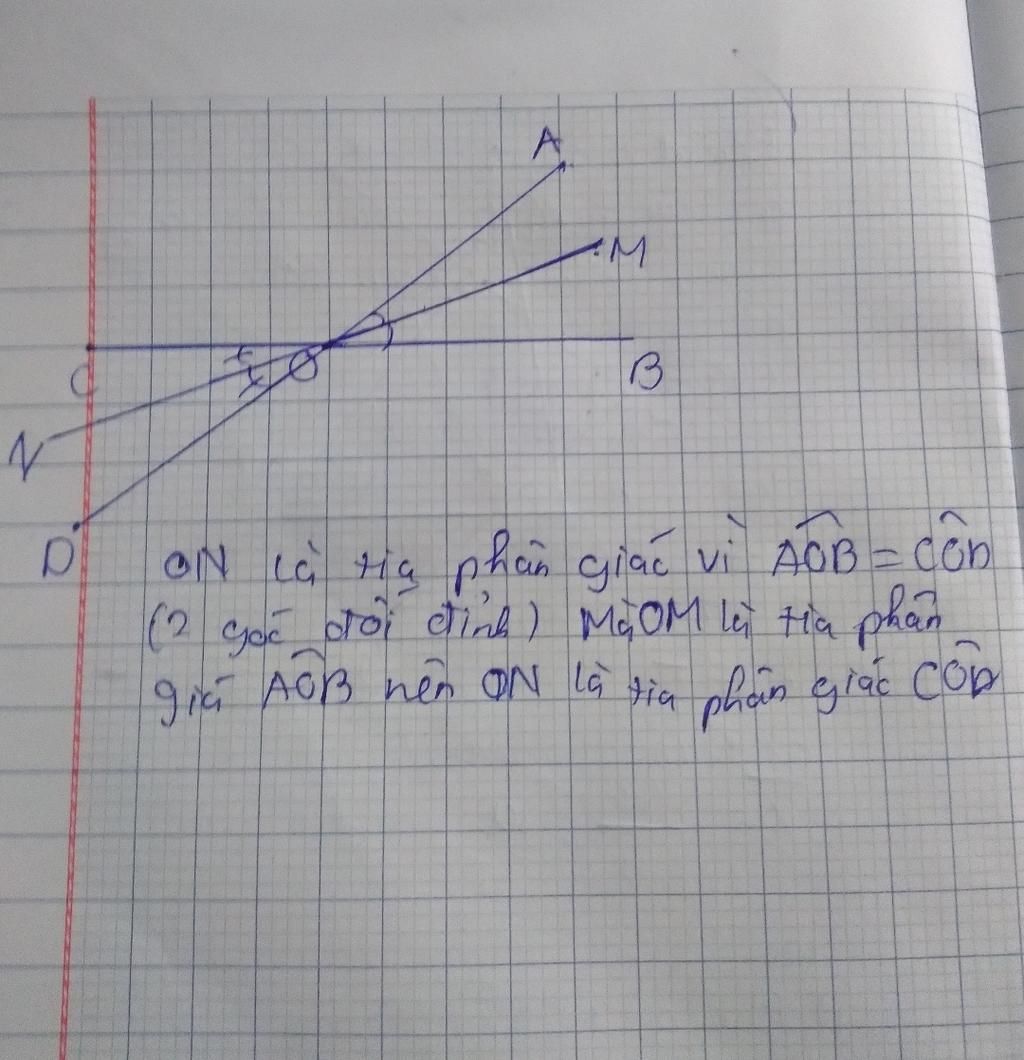 A
M
C
O
B
N
D
ON là tia phân giác vì AOB = COD
(2 góc đối đỉnh) Mà OM là tia phân
giá AOB nên ON là tia phân giác COD